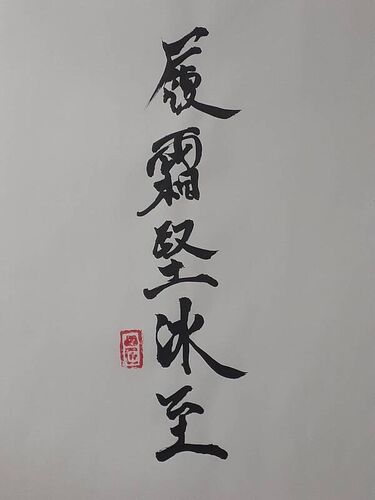 履霜堅冰至